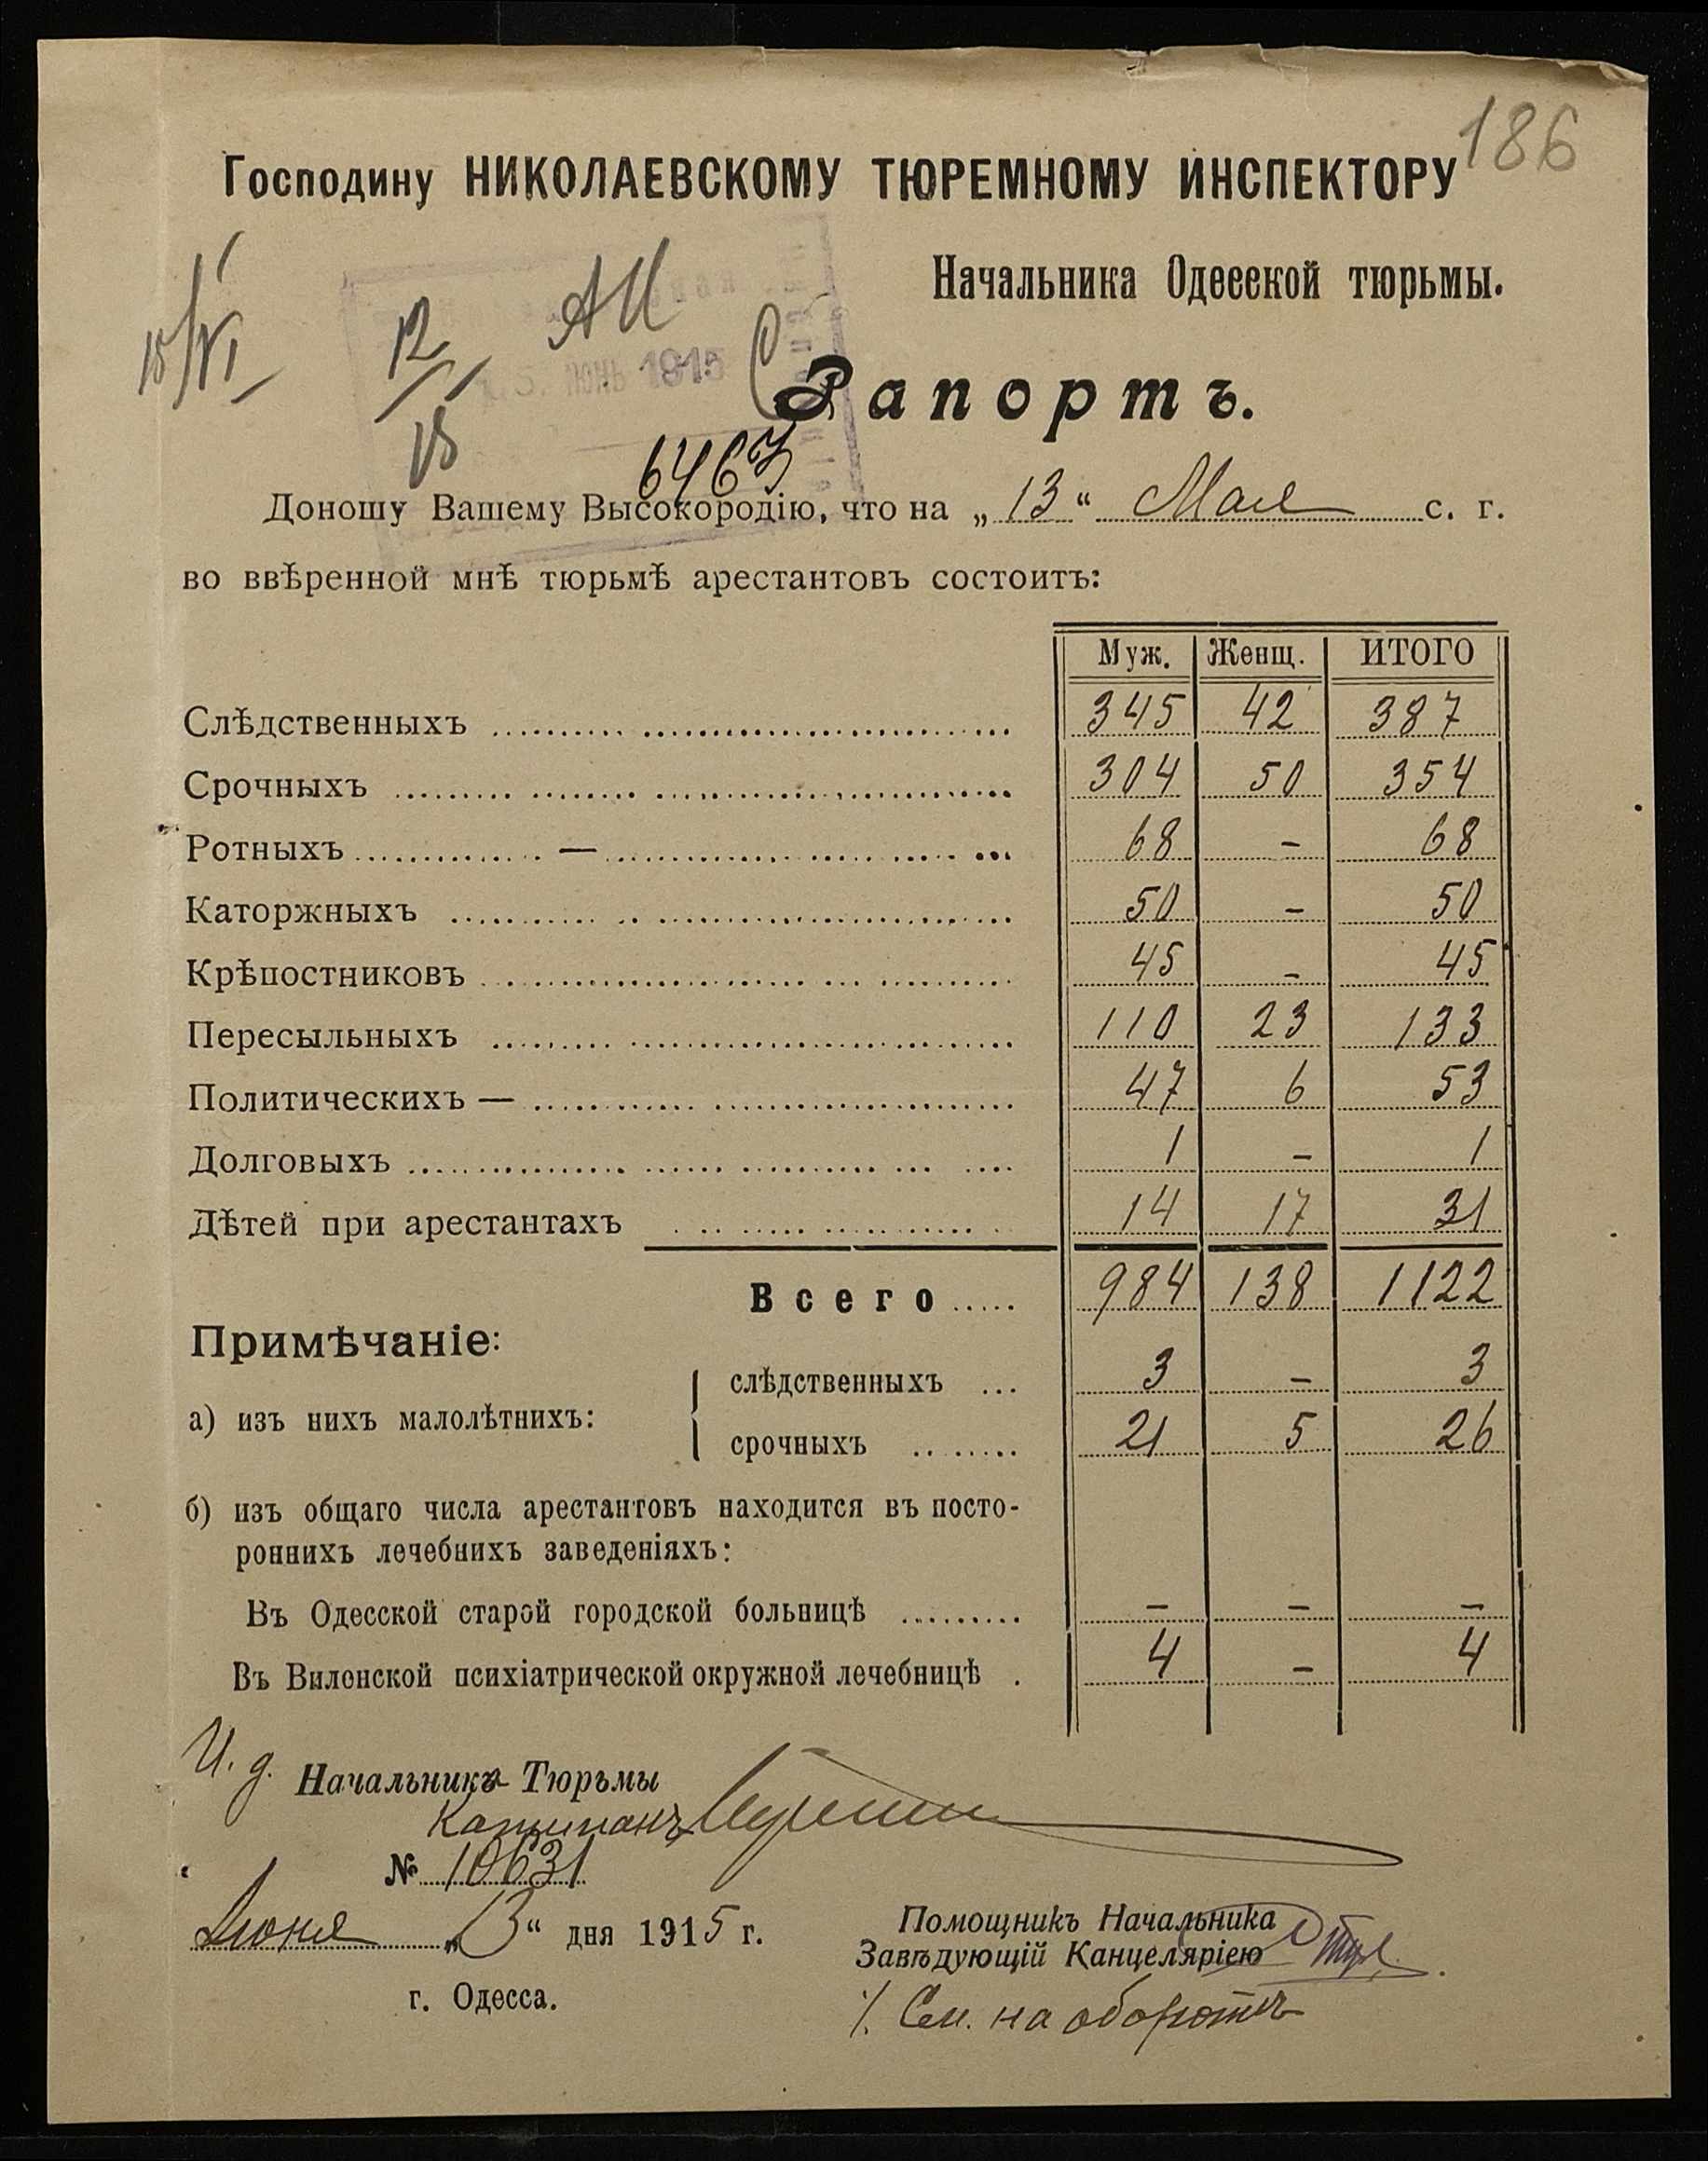 186
Господину НИКОЛАЕВСКОМУ ТЮРЕМНОМУ ИНСПЕКТОРУ
Начальника Одесской тюрьмы.
15/VI
12
15
АИ
ІЮНЬ 1915
Рапортъ.
6463
Доношу Вашему Высокородію, что на „13“ Мая с. г.
во ввѣренной мнѣ тюрьмѣ арестантовъ состоитъ:
Муж. Женщ. ИТОГО
Слѣдственныхъ 345 42 387
Срочныхъ 304 50 354
Ротныхъ — 68 - 68
Каторжныхъ 50 - 50
Крѣпостниковъ 45 - 45
Пересыльныхъ 110 23 133
Политическихъ — 47 6 53
Долговыхъ 1 - 1
Дѣтей при арестантахъ 14 17 31
Всего 984 138 1122
Примѣчаніе:
а) изъ нихъ малолѣтнихъ:
слѣдственныхъ 3 - 3
срочныхъ 21 5 26
б) изъ общаго числа арестантовъ находится въ посто-
роннихъ лечебнихъ заведеніяхъ:
Въ Одесской старой городской больницѣ - - -
Въ Виленской психіатрической окружной лечебницѣ 4 - 4
И. д. Начальника Тюрьмы
Капитанъ
№ 10631
Июня „13“ дня 1915 г.
г. Одесса.
Помощникъ Начальника
Завѣдующій Канцеляріею
%. См. на оборотѣ